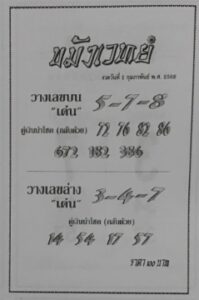 ขมังเวทย์
งวดวันที่ 1 กุมภาพันธ์ พ.ศ. 2568
วางเลขบน 5-7-8
"เด่น"
คู่เงินนำโชค (กลับด้วย) 72 76 82 86
672 182 386
วางเลขล่าง 3-4-7
"เด่น"
คู่เงินนำโชค (กลับด้วย)
14 54 17 57
ราคา ๒๐ บาท